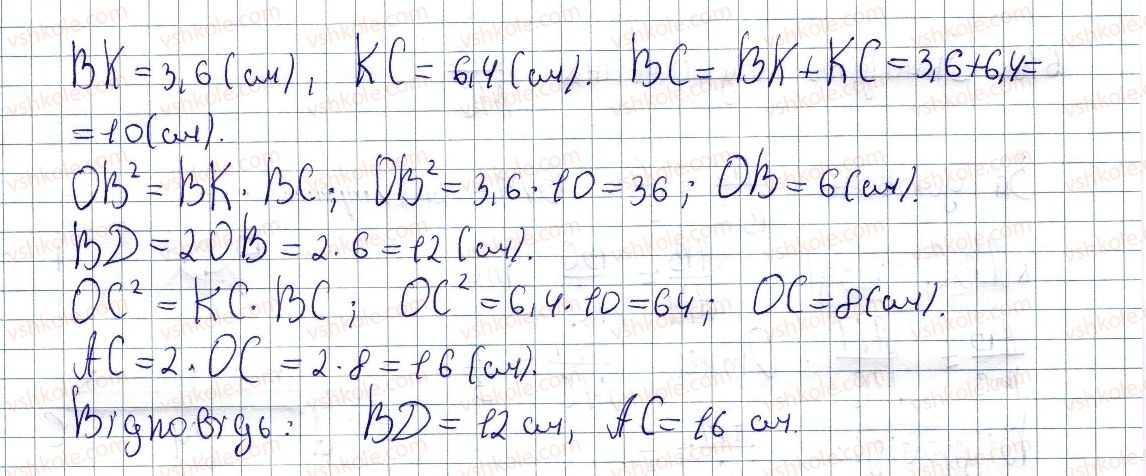 BK = 3,6 (см), KC = 6,4 (см). BC = BK + KC = 3,6 + 6,4 =
= 10 (см).
OB² = BK · BC; OB² = 3,6 · 10 = 36; OB = 6 (см).
BD = 2OB = 2 · 6 = 12 (см).
OC² = KC · BC; OC² = 6,4 · 10 = 64; OC = 8 (см).
AC = 2 · OC = 2 · 8 = 16 (см).
Відповідь: BD = 12 см, AC = 16 см.
vshkole.com